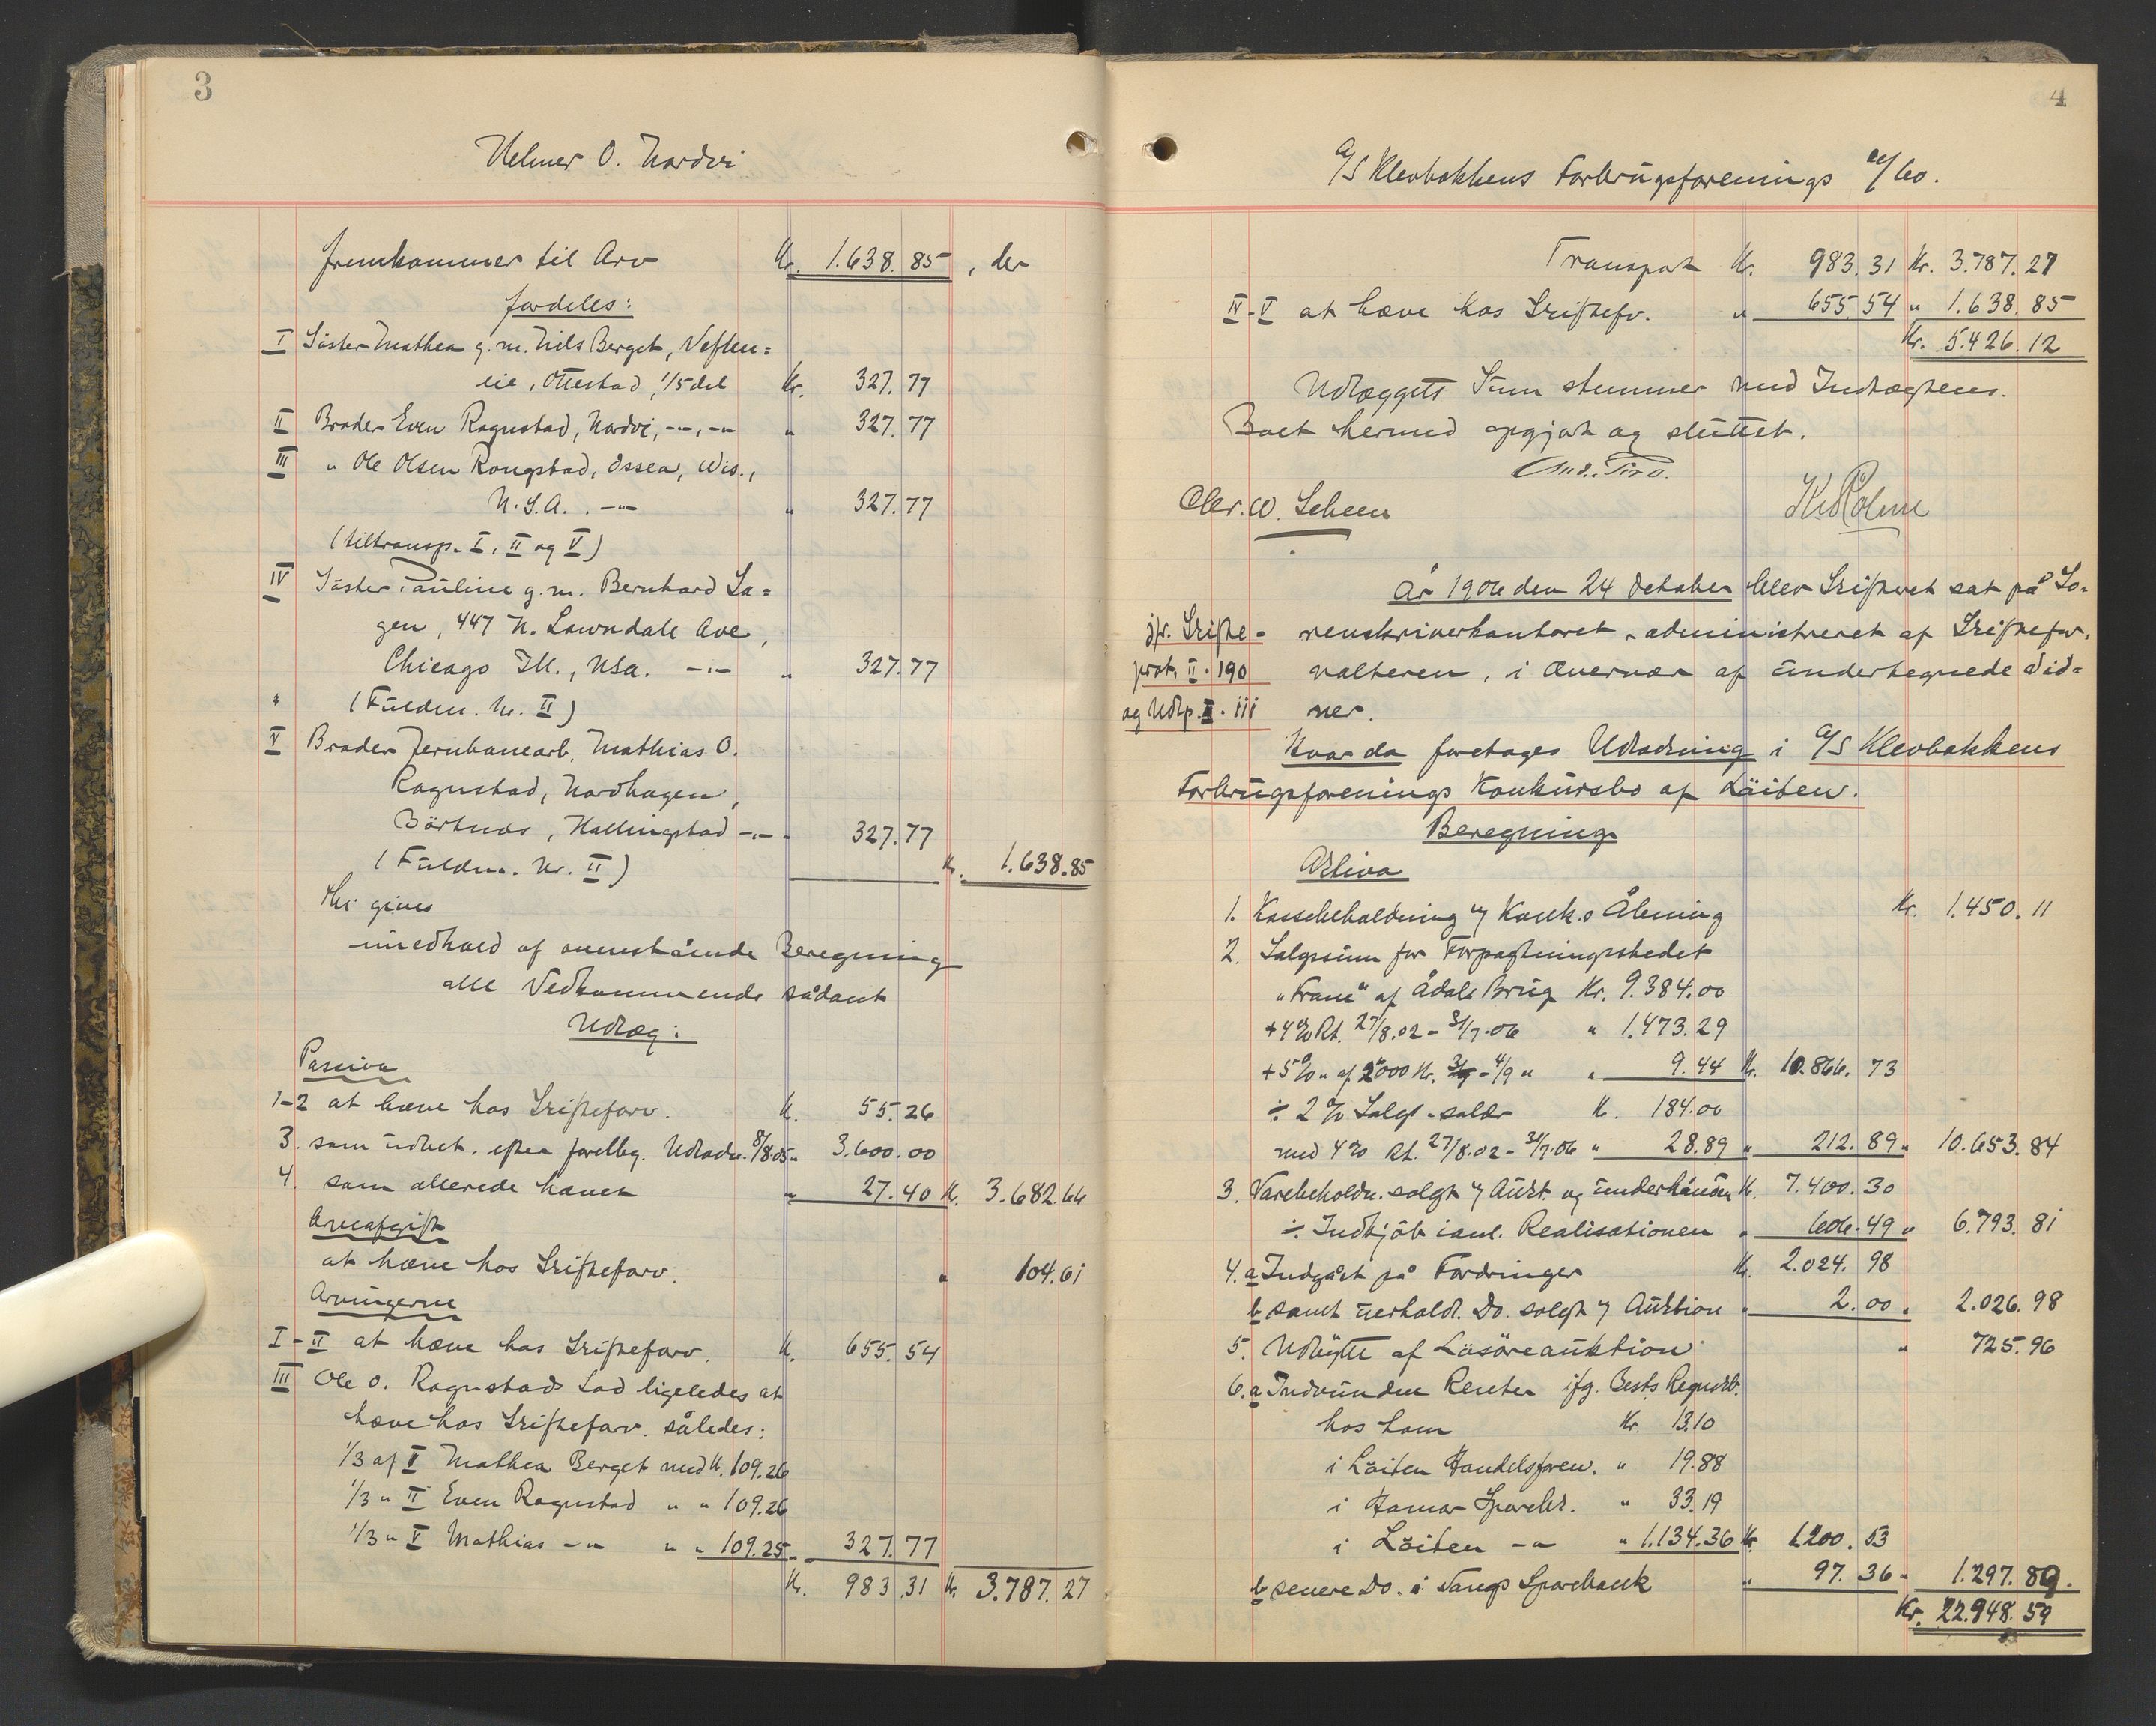 3
Helmer O. Nordvi
fremkommer til Arv Kr. 1.638.85, der
fordeles:
I Söster Mathea g. m. Nils Berget, Veflen=
eie, Ottestad, 1/5 del Kr. 327.77
II Broder Even Rognstad, Nordvi, -"-, -"- " 327.77
III " Ole Olsen Rongstad, Osseo, Wis.,
U.S.A. . -"- " 327.77
(Tiltransp. I, II og V)
IV Söster Pauline g. m. Bernhard La=
gen, 447 N. Lawndale Ave,
Chicago Ill., Usa. -"- " 327.77
(Fuldm. Nr. II)
V Broder Jernbanearb. Mathias O.
Rognstad, Nordhagen,
Börtnes, Hallingstad -"- " 327.77
(Fuldm. Nr. II) Kr. 1.638.85
Thi gives
i medhold af ovenstående Beregning
alle Vedkommende sådant
Udlæg:
Passiva
1-2 at hæve hos Skifteforv. Kr. 55.26
3. som udbet. efter foreløbig Udlodn. 8/8.05 " 3.600.00
4. som allerede hævet " 27.40 Kr. 3.682.66
Arveafgift
at hæve hos Skifteforv. " 104.61
Arvingerne
I-II at hæve hos Skifteforv. Kr. 655.54
III Ole O. Rognstads Lod ligeledes at
hæve hos Skifteforv. således:
1/3 af I Mathea Berget med Kr. 109.26
1/3 " II Even Rognstad " " 109.26
1/3 " V Mathias -"- " " 109.25 " 327.77
Kr. 983.31 Kr. 3.787.27
4
A/S Klevbakkens Forbrugsforenings
Transport Kr. 983.31 Kr. 3.787.27
IV-V at hæve hos Skiftefv. " 655.54 " 1.638.85
Kr. 5.426.12
Udlæggets Sum stemmer med Indtægtens.
Boet hermed opgjort og sluttet.
Chr. W. Scheen
År 1906 den 24 Oktober blev Skifteret sat på So=
renskriverkontoret, administreret af Skiftefor=
valteren, i Overvær af undertegnede Vid=
ner.
jfr. Skifte=
prot. II. 190
og Udlp. II. 111
Hvor da foretages Udlodning i A/S Klevbakkens
Forbrugsforenings Konkursbo af Löiten.
Beregning
Aktiva
1. Kassebeholdning v/ Konk.s Åbning Kr. 1.450.11
2. Salgssum for Forpagtningsstedet
"Fram" af Ådals Brug Kr. 9.384.00
+4% Rt. 27/8.02 - 31/7.06 " 1.473.29
+5% " af 2000 Kr. 31/7 - 4/9 " " 9.44 Kr. 10.866.73
÷ 2% Salgs-salær Kr. 184.00
med 4% Rt. 27/8.02 - 31/7.06 " 28.89 " 212.89 " 10.653.84
3. Varebeholdn. solgt v/ Aukt. og underhånden Kr. 7.400.30
÷ Indkjöb i anl. Realisationen " 606.49 " 6.793.81
4. a Indgået på Fordringer Kr. 2.024.98
b samt uerholdt. Do. solgt v/ Auktion " 2.00 " 2.026.98
5. Udbytte af Lösöreauktion " 725.96
6. a Indvundne Renter ifg. Bests Regnsk.
hos ham Kr. 13.10
i Löiten Handelsforen. " 19.88
i Hamar Sparebk. " 33.19
i Löiten -"- " 1.134.36 Kr. 1.200.53
b senere Do. i Vangs Sparebank " 97.36 " 1.297.89.
Kr. 22.948.59